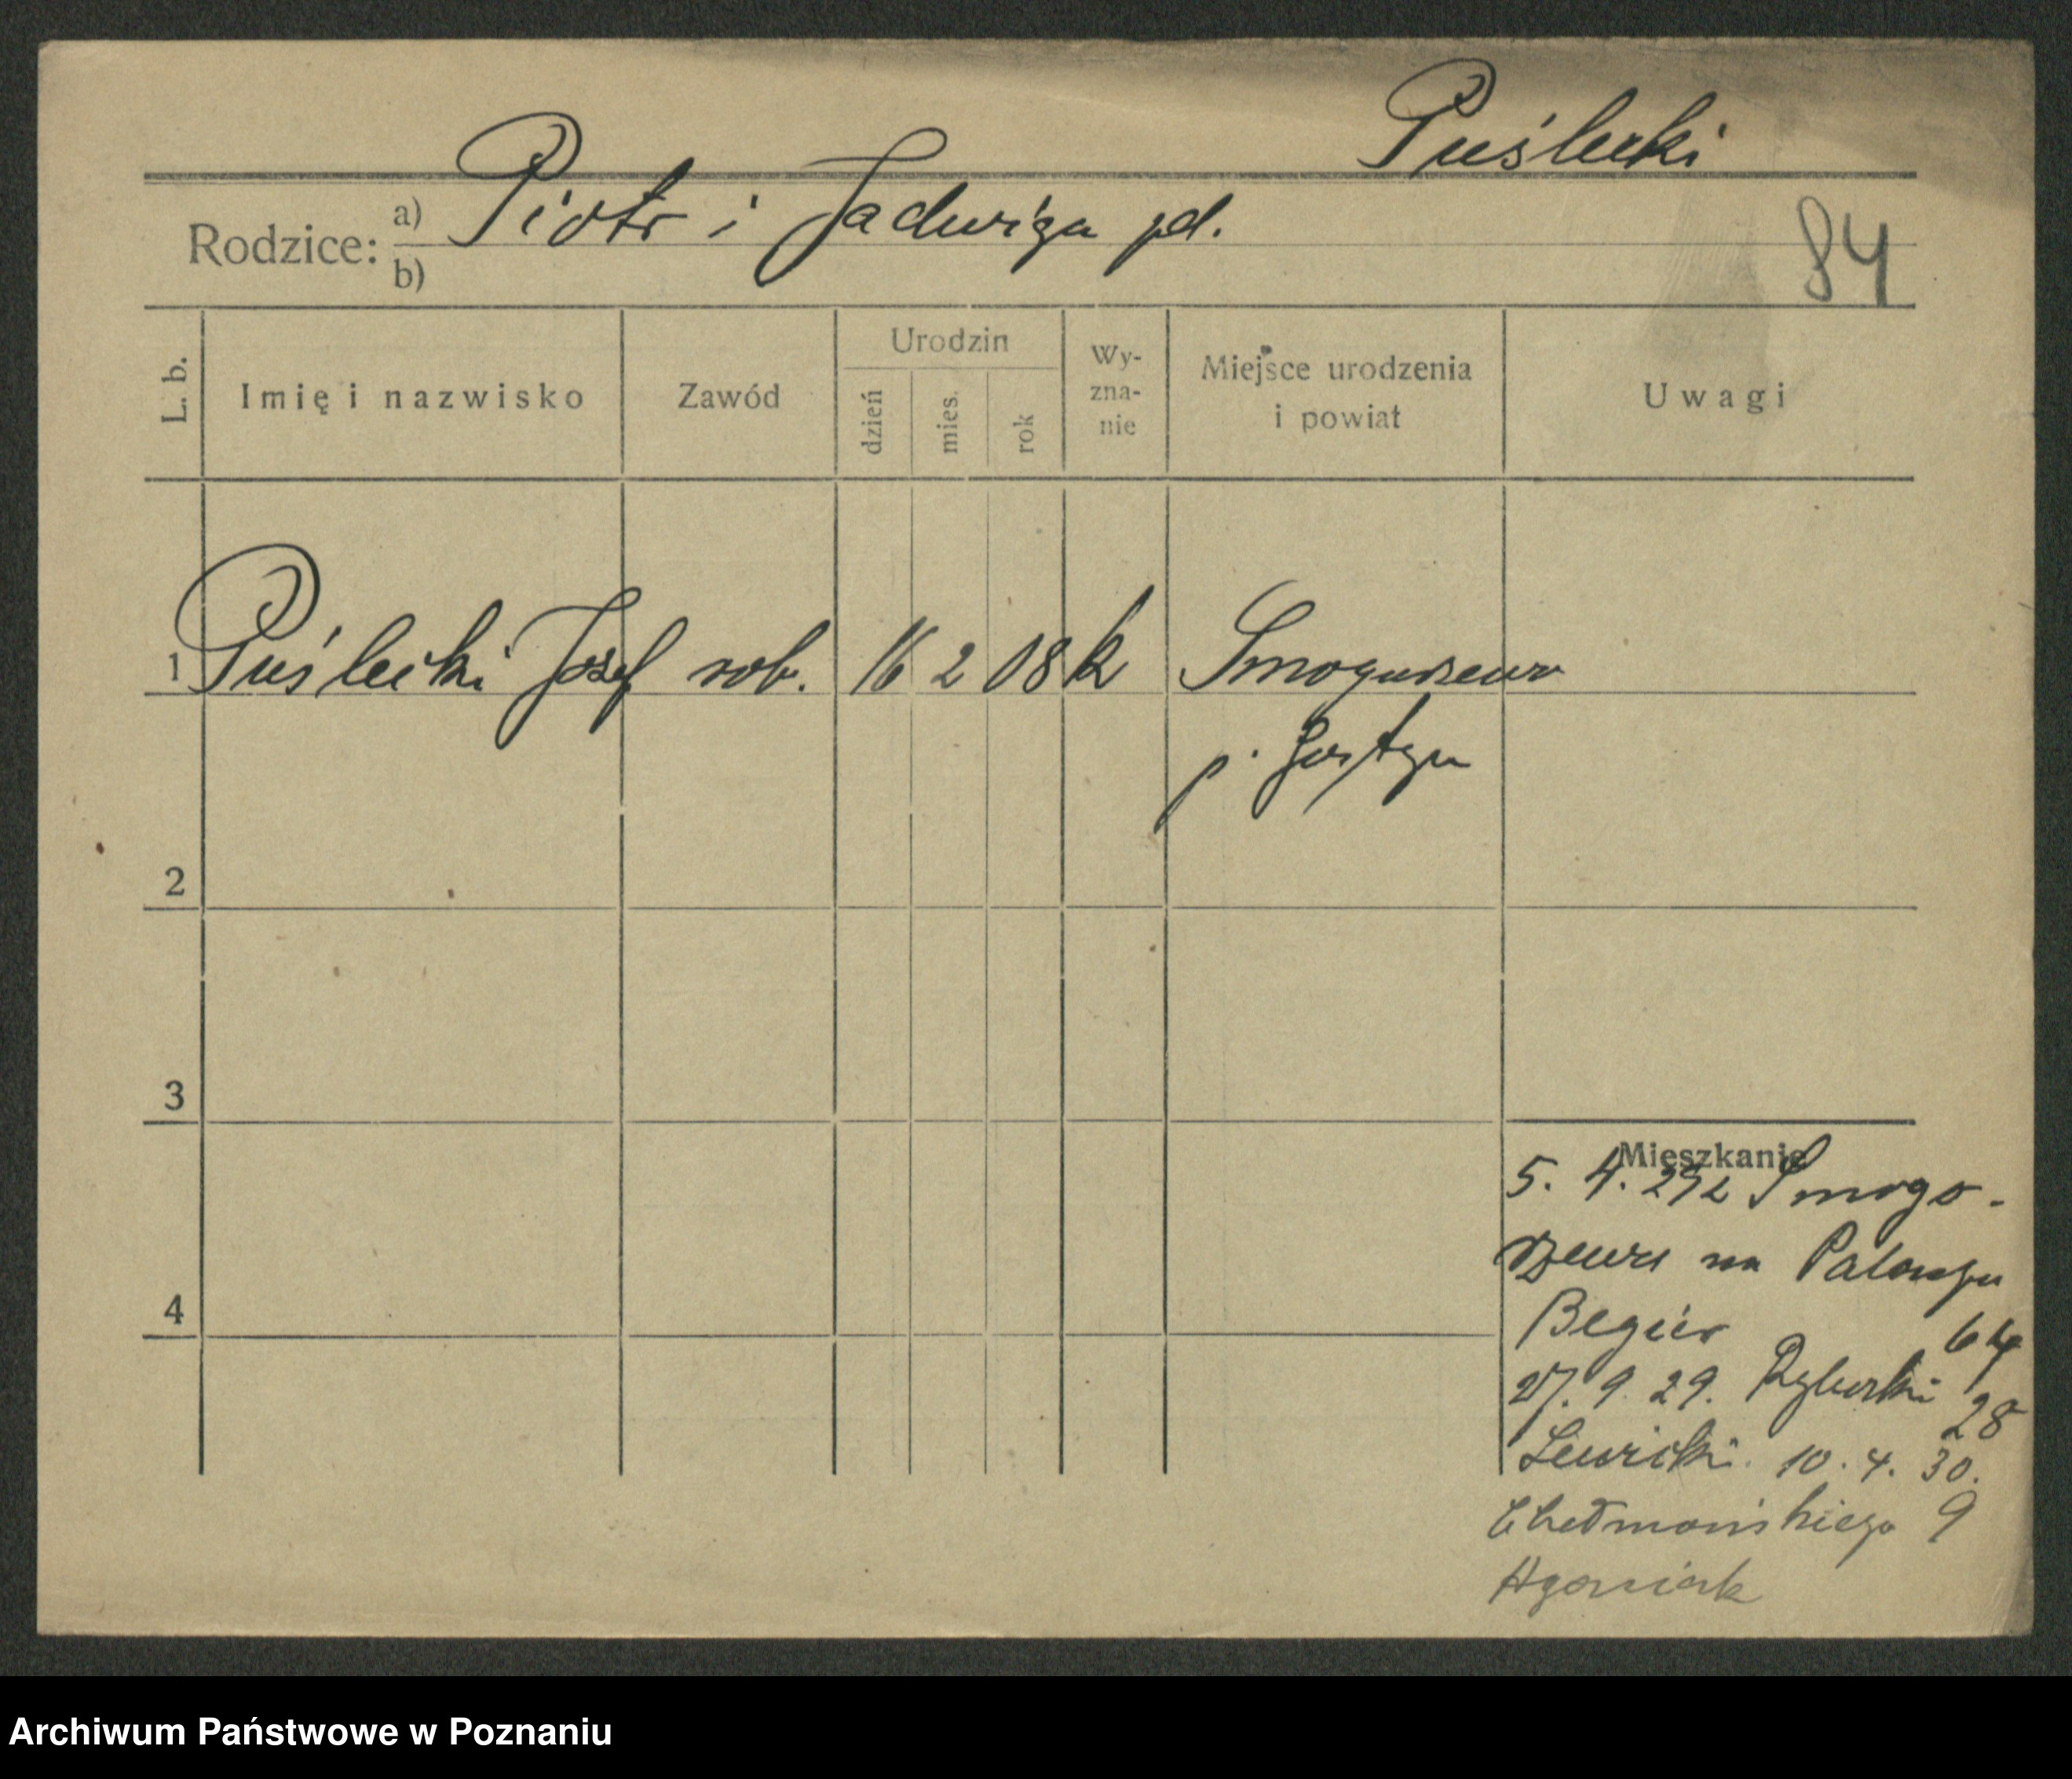 Puślecki
Rodzice: a) Piotr i Jadwiga pd.
b)
84
L. b. Imię i nazwisko Zawód Urodzin dzień mies. rok Wy-zna-nie Miejsce urodzenia i powiat Uwagi
1 Puślecki Józef rob. 16 2 08 k Smogorzewo
p. Gostyn
2
3
Mieszkanie
5. 4. 29 z Smogo-
rzewa na
4
Begier 64
27. 9. 29. Rybaki 28
Lewicki 10. 4. 30.
Chełmońskiego 9
Archiwum Państwowe w Poznaniu